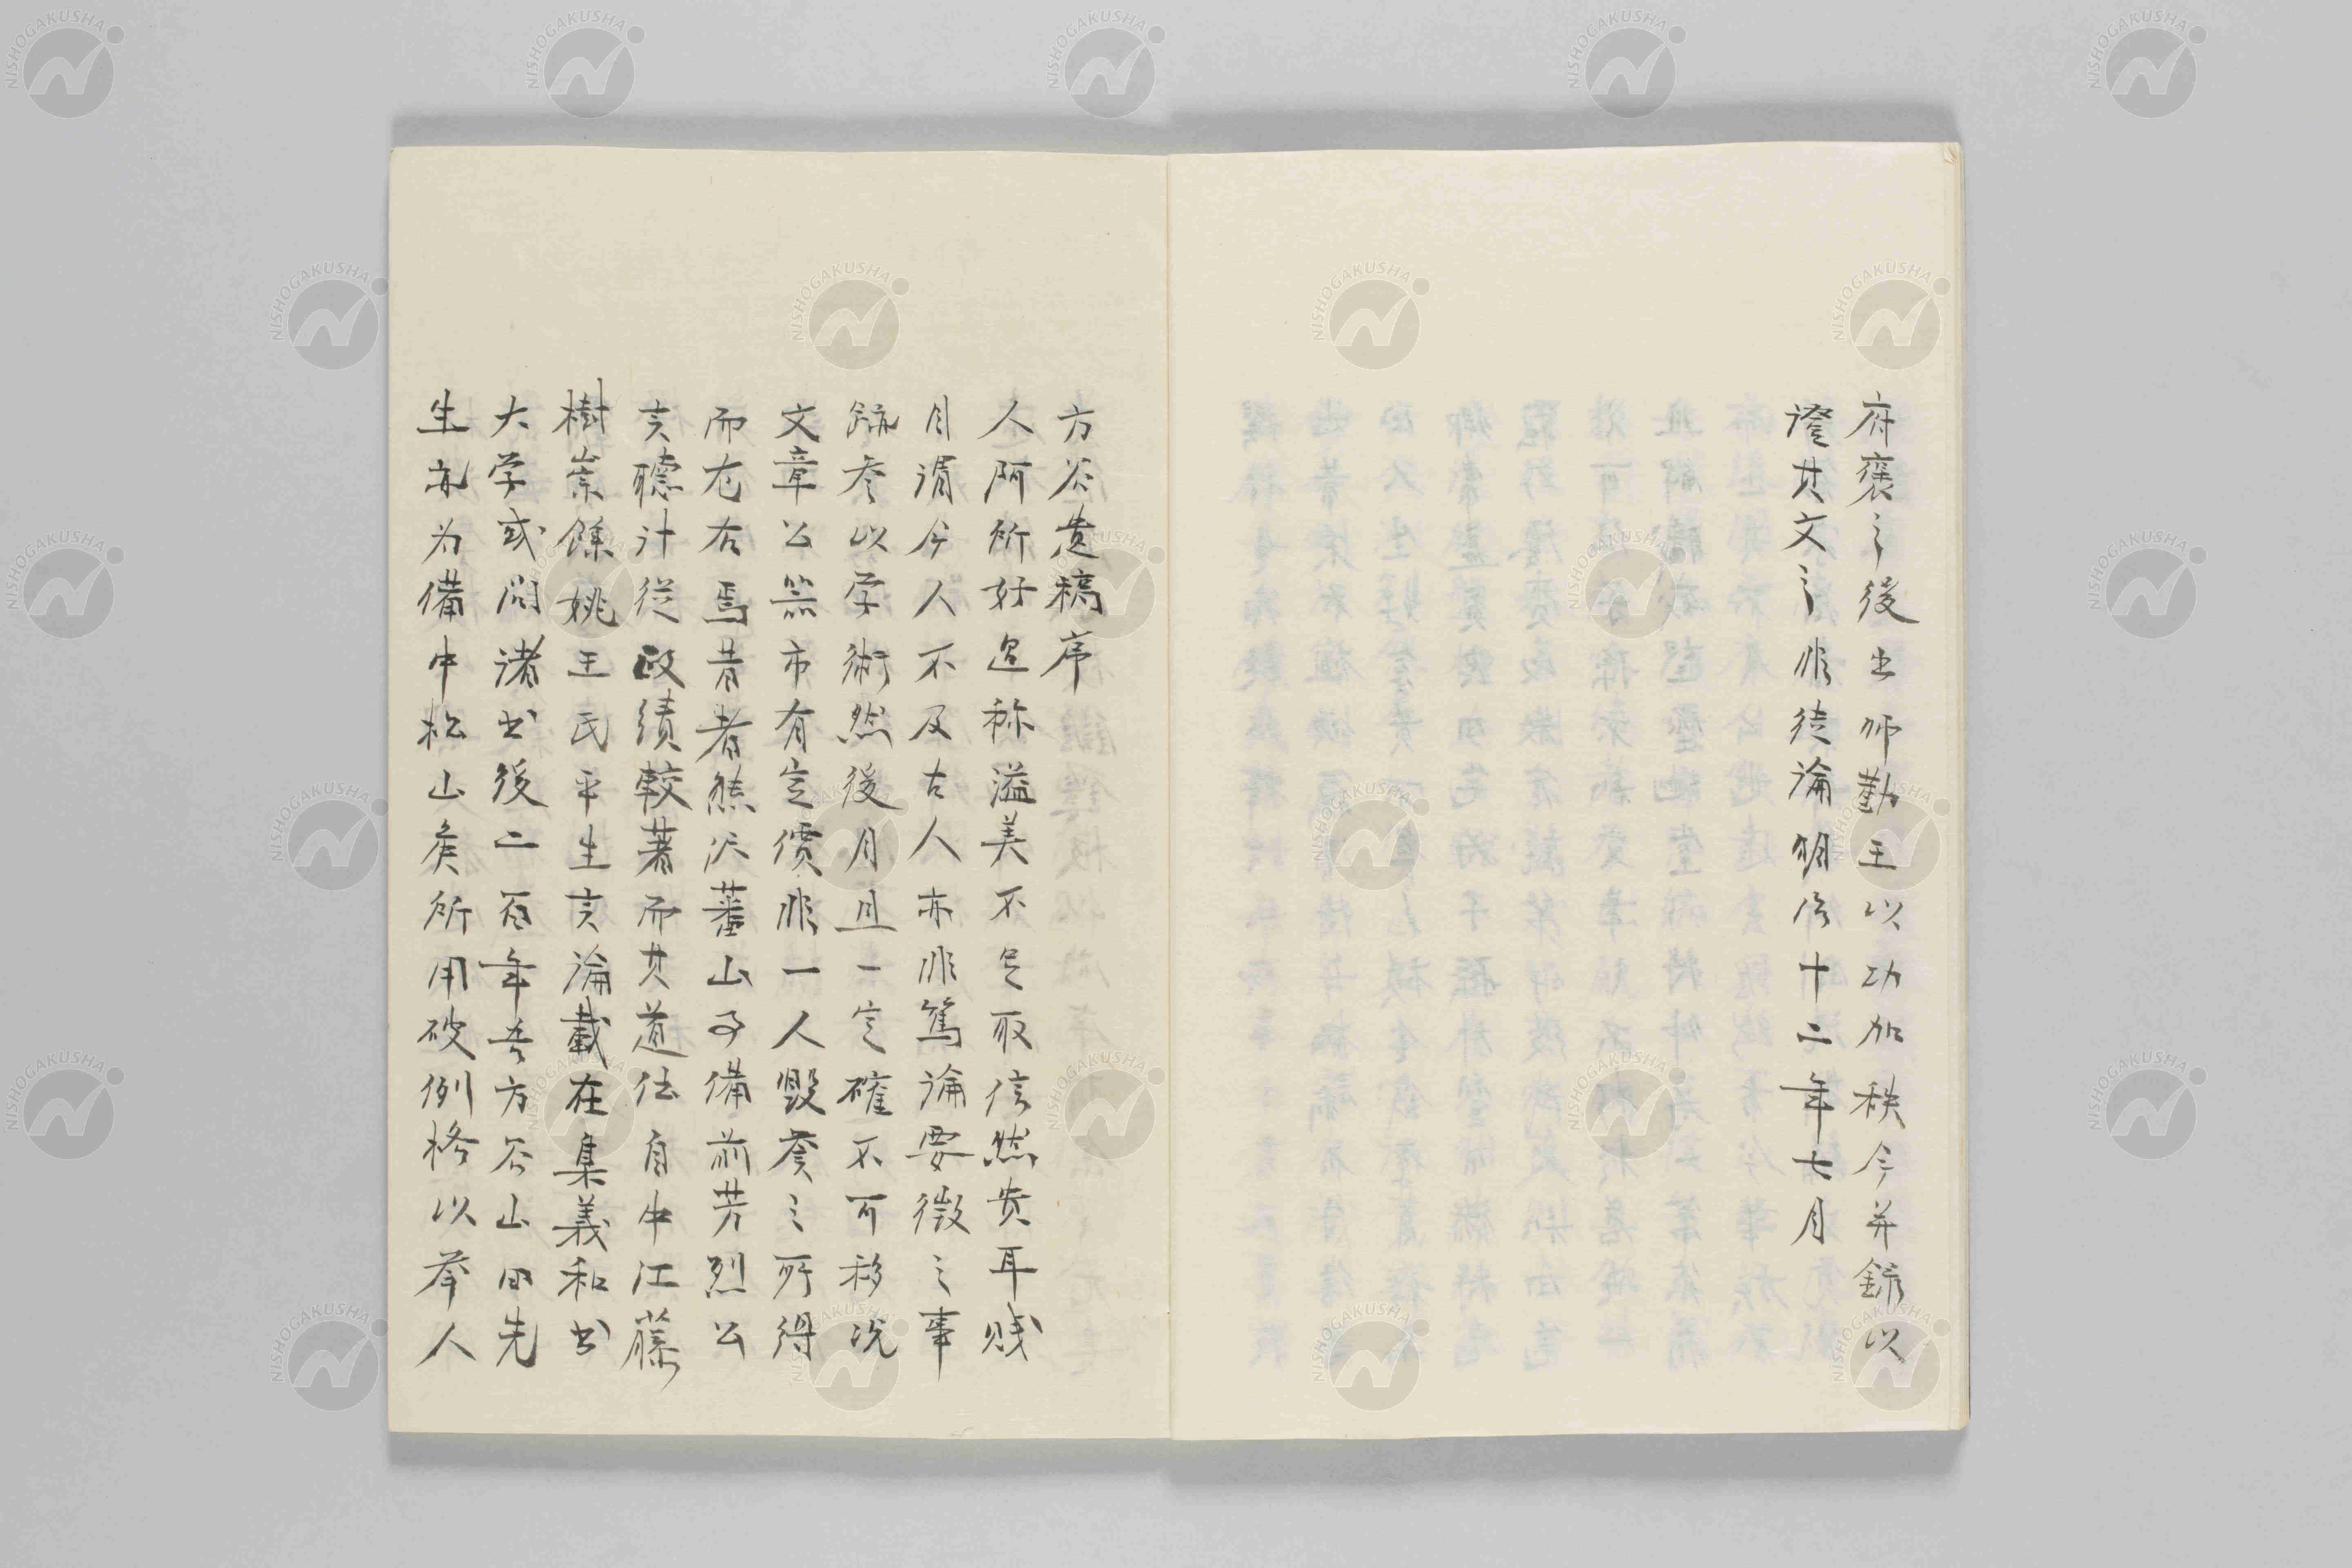 府褒之後出师勤王以功加秩今并録以
證其文之非徒論明治十二年七月
方谷遺稿序
人阿所好過称溢美不足取信然貴耳賤
目謂今人不及古人亦非篤論要徴之事
跡参以学術然後月旦一定確不可移况
文章公器市有定價非一人毀誉之所得
而左右焉昔者熊沢蕃山子備前芳烈公
言聴計従政績較著而其道伝自中江藤
樹崇餘姚王氏平生言論載在集義和书
大学或问诸书後二百年吾方谷山田先
生亦为備中松山矦所用破例格以举人
NISHOGAKUSHA